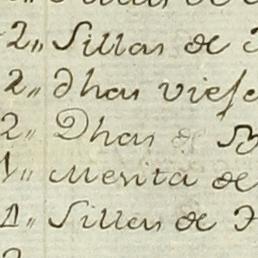 2,, Sillas de
2,, Dhas vieja
2,, Dhas de
1,, Mesita de
1,, Sillas de